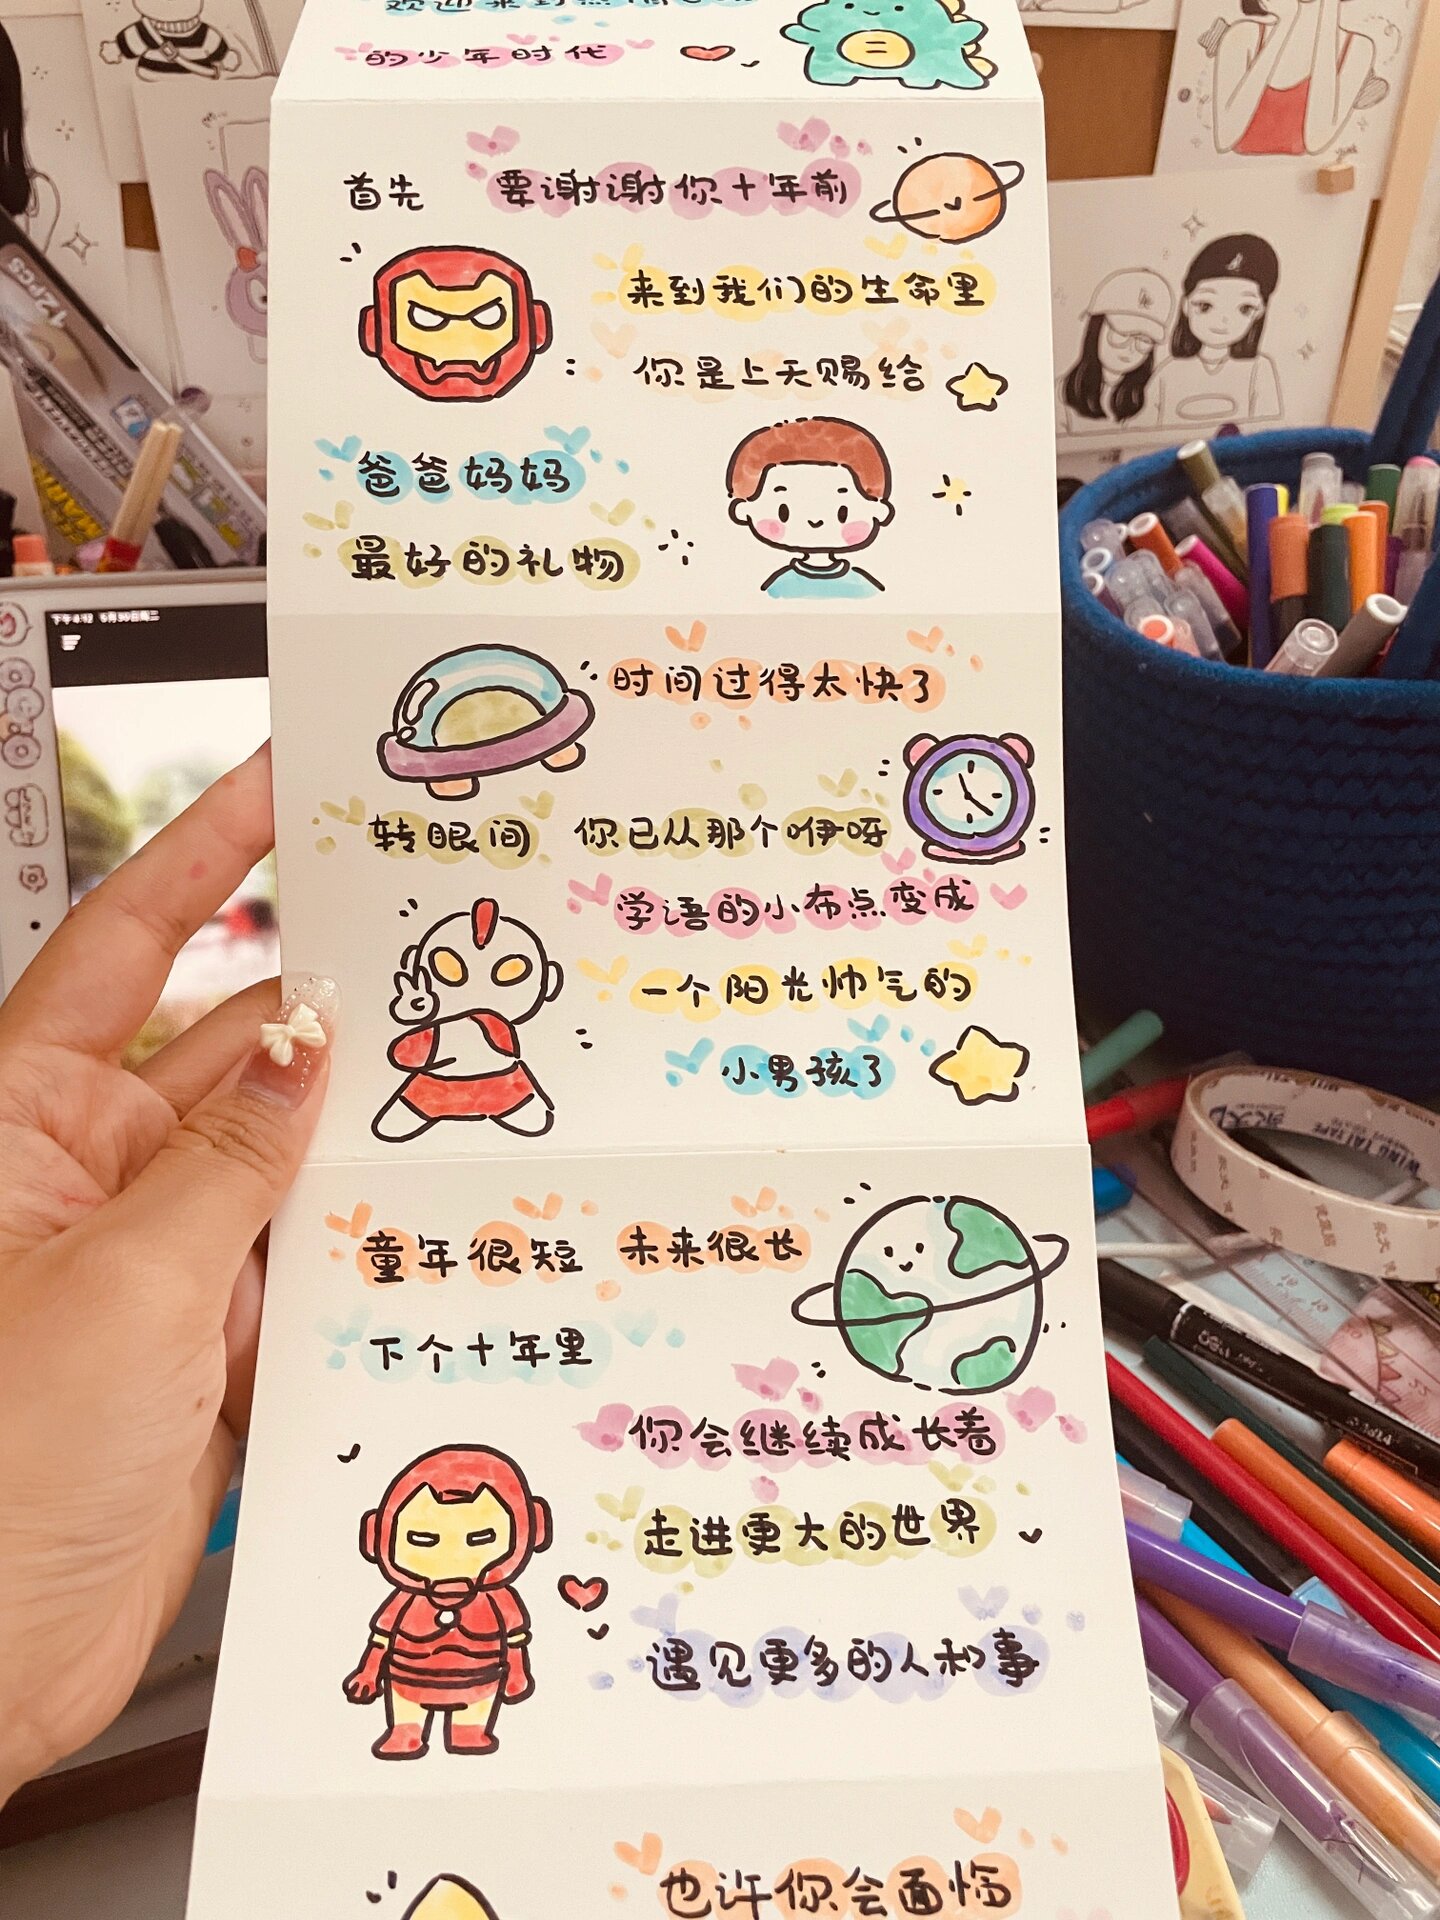 欢迎来到
的少年时代
首先 要谢谢你十年前
来到我们的生命里
你是上天赐给
爸爸妈妈
最好的礼物
时间过得太快了
转眼间 你已从那个咿呀
学语的小布点变成
一个阳光帅气的
小男孩了
童年很短 未来很长
下个十年里
你会继续成长着
走进更大的世界
遇见更多的人和事
也许你会面临
12PCS
下午4:12 5月30日周二
WING TAI TAPE